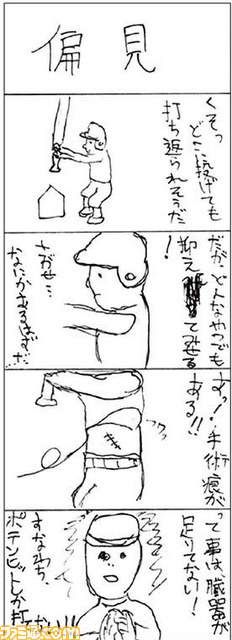 偏見
くそっ
どこに投げても
打ち返られそうだ
だが、どんなやつでも
抑えて見せる
!
さがせ…
なにかあるはずだ…
あっ!手術痕が
ある!!
って事は、臓器が
足りてない!
すなわち、
ポテンヒットしか打てない!!!
ファミ通.com